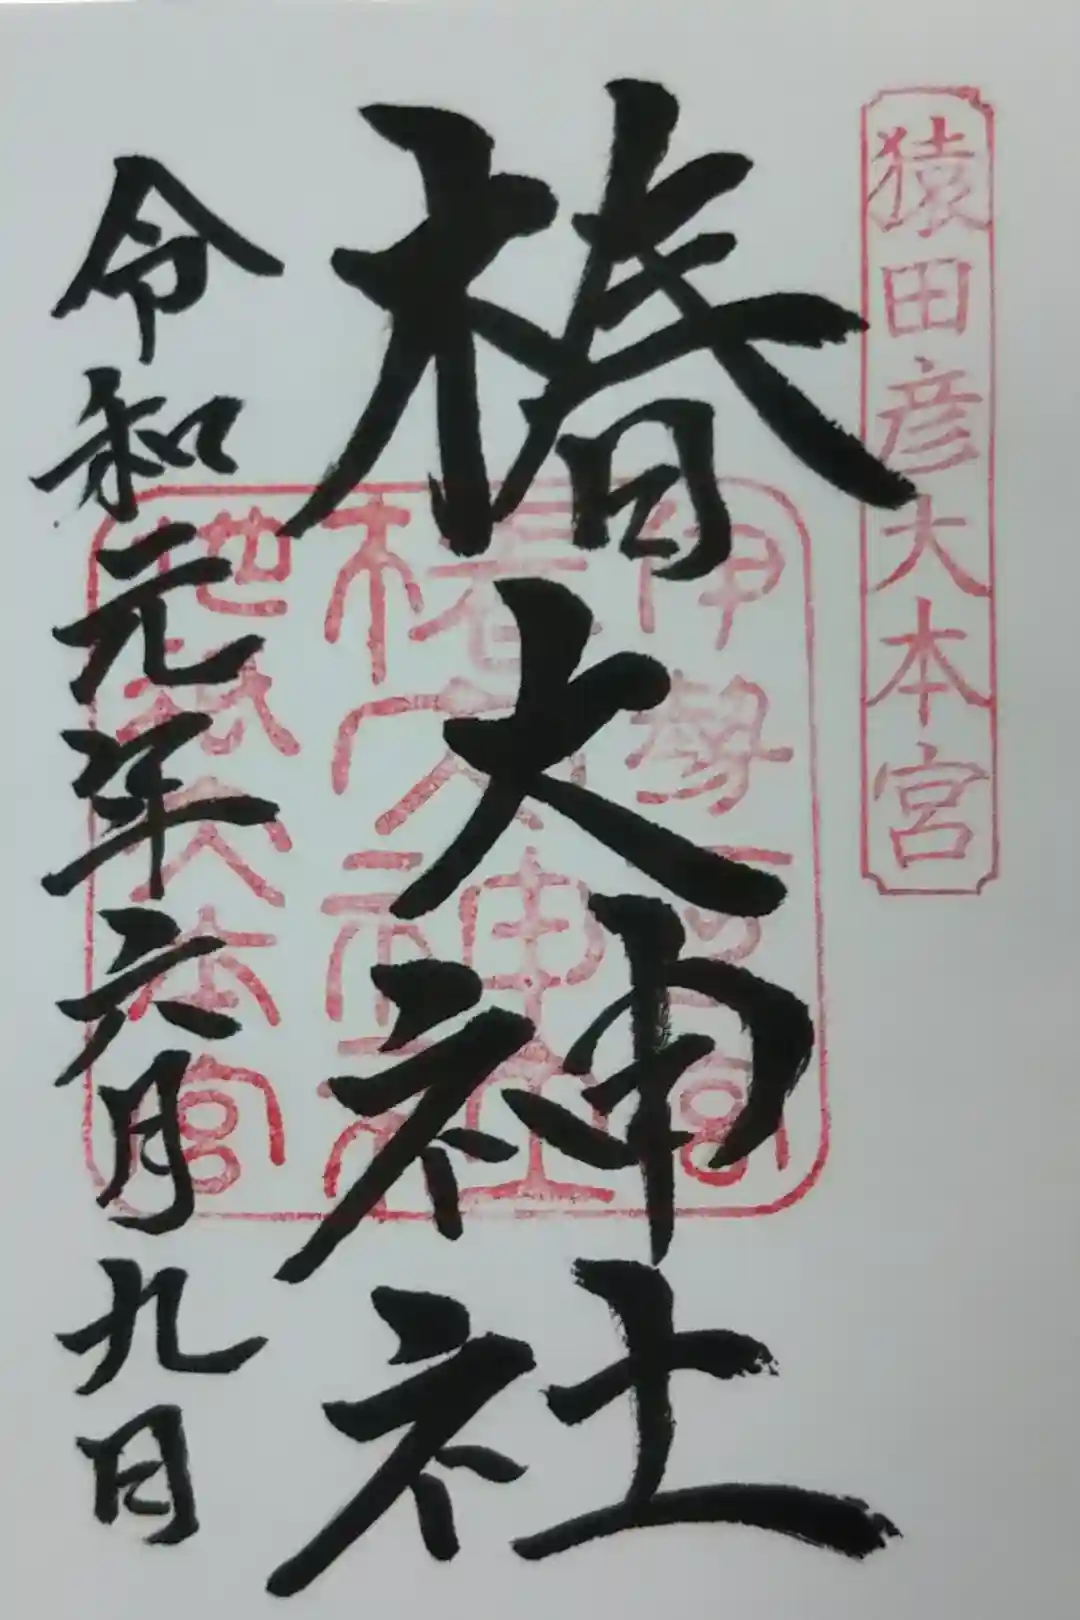 猿田彦大本宮
椿大神社
令和元年六月九日
伊勢一之宮
椿大神社
地祇大本宮